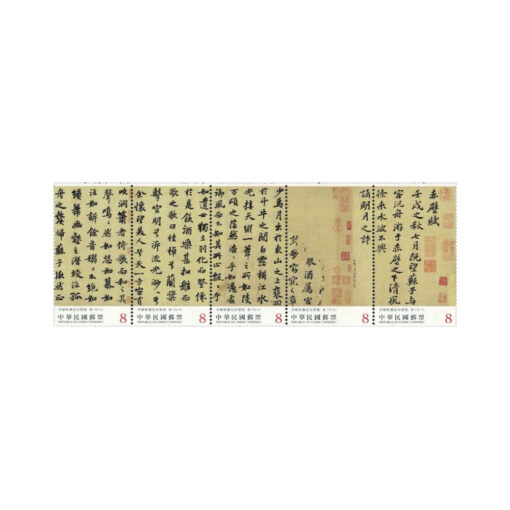 赤壁賦
壬戌之秋七月既望蘇子與
客泛舟游于赤壁之下清風
徐來水波不興
誦明月之詩
少焉月出於東山之上裵回
於斗牛之間白露橫江水
光接天縱一葦之所如
萬頃之茫然浩浩乎如馮虛
御風而不知其所止飄飄乎
如遺世獨立羽化而登僊
於是飲酒樂甚扣舷而
歌之歌曰桂棹兮蘭槳
擊空明兮泝流光渺渺兮
余懷望美人兮天一方客有
吹洞簫者倚歌而和之其
聲嗚嗚然如怨如慕如
泣如訴餘音嫋嫋不絕如
縷舞幽壑之潛蛟泣孤
舟之嫠婦蘇子愀然正
中華民國郵票 8
REPUBLIC OF CHINA (TAIWAN)
中華民國郵票 8
REPUBLIC OF CHINA (TAIWAN)
中華民國郵票 8
REPUBLIC OF CHINA (TAIWAN)
中華民國郵票 8
REPUBLIC OF CHINA (TAIWAN)
中華民國郵票 8
REPUBLIC OF CHINA (TAIWAN)